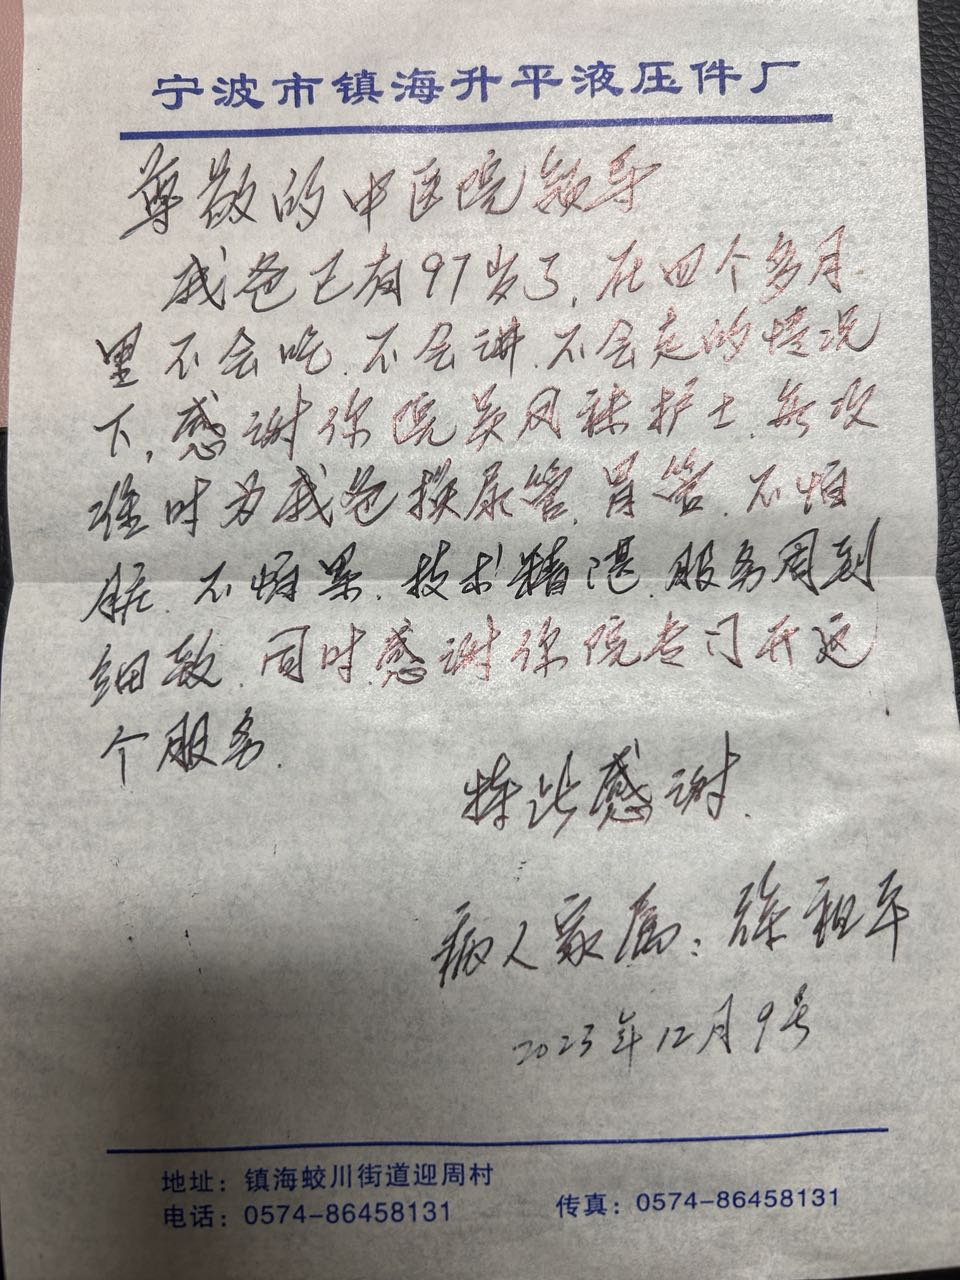 宁波市镇海升平液压件厂
尊敬的中医院领导
我爸已有97岁了,在四个多月
里不会吃、不会讲、不会走的情况
下,感谢你院吴风 护士,每次
准时为我爸换尿管,胃管,不怕
脏、不怕累,技术精湛,服务周到
细致,同时感谢你院专门开这
个服务.
特此感谢.
病人家属: 祖平
2023年12月9号
地址：镇海蛟川街道迎周村
电话：0574-86458131
传真：0574-86458131